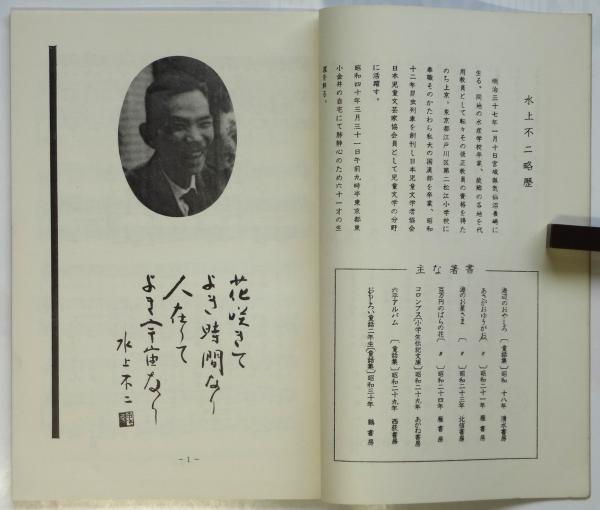 水上不二略歴
明治三十七年一月十日宮城県気仙沼大島に
生る。同地の水産学校卒業、故郷の各地を代
用教員として転々その後正教員の資格を得た
のち上京。東京都江戸川区第二松江小学校に
奉職そのかたわら私大の国漢部を卒業、昭和
十二年昆虫列車を創刊し日本児童文学者協会
日本児童文芸家協会員として児童文学の分野
に活躍す。
昭和四十年三月三十一日午前九時半東京都東
小金井の自宅にて肺肝心のため六十一才の生
涯を終る。
主な著書
海辺のおやしろ〔童話集〕昭和十八年 清水書房
あさがおゆうがお〔〃〕昭和二十一年 雁書房
湖のお星さま〔〃〕昭和二十三年 北信書房
百万円のばらの花〔〃〕昭和二十四年 雁書房
コロンブス〔小学生伝記文庫〕昭和二十九年 あかね書房
六平アルバム〔童話集〕昭和二十九年 西荻書店
おもしろい童話二年生〔童話集〕昭和三十年 鶴書房
花咲きて
よき時間なり
人在りて
よき宇宙なり
水上不二
-1-